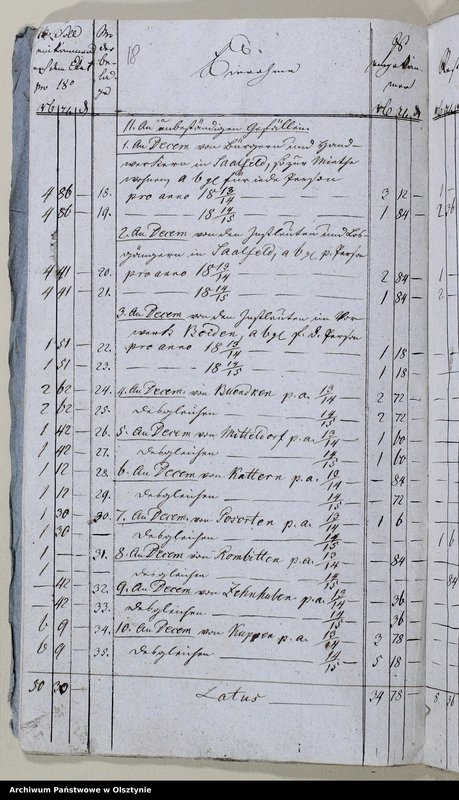 18
Einnahme
II. An unbeständigen Gefällen
1. An Decem von Bürgern und Hand-
werkern in Saalfeld, so zur Miethe
wohnen a 6 gl für jede Person
4 86 — 18. pro anno 18 13/14 — 3 12 — 1
4 86 — 19. — 18 14/15 — 1 84 — 2 36
2. An Decem von den Instleuten und Los-
gängern in Saalfeld, a 6 gl p. Person
4 41 — 20. pro anno 18 13/14 — 2 84 — 1
4 41 — 21. — 18 14/15 — 1 84 — 2
3. An Decem von den Instleuten im Vor-
werk Boiden, a 6 gl p. d. Person
1 51 22. pro anno 18 13/14 — 1 18 —
1 51 — 23. — 18 14/15 — 1 18
2 62 — 24. 4. An Decem von Kuendken p. a. 13/14 2 72 —
2 62 — 25. desgleichen — 14/15 2 72 —
1 42 — 26. 5. An Decem von Mitteldorf p. a. 13/14 1 60
1 42 — 27. desgleichen — 14/15 1 60
1 12 — 28. 6. An Decem von Kattern p. a. 13/14 — 84
1 12 29. desgleichen — 14/15 — 72 —
1 30 — 30. 7. An Decem von Posorten p. a. 13/14 1 6
1 30 — desgleichen — 14/15 1 6
1 — 31. 8. An Decem von Rombitten p. a. 13/14 84
1 — desgleichen — 14/15 84
— 42 32. 9. An Decem von Zehnhuben p. a. 13/14 — 36
— 42 33. desgleichen — 14/15 — 36
6 9 34. 10. An Decem von Kuppen p. a. 13/14 3 78 —
6 9 35. desgleichen — 14/15 5 18
50 30 Latus — 34 78 — 8 36
Archiwum Państwowe w Olsztynie